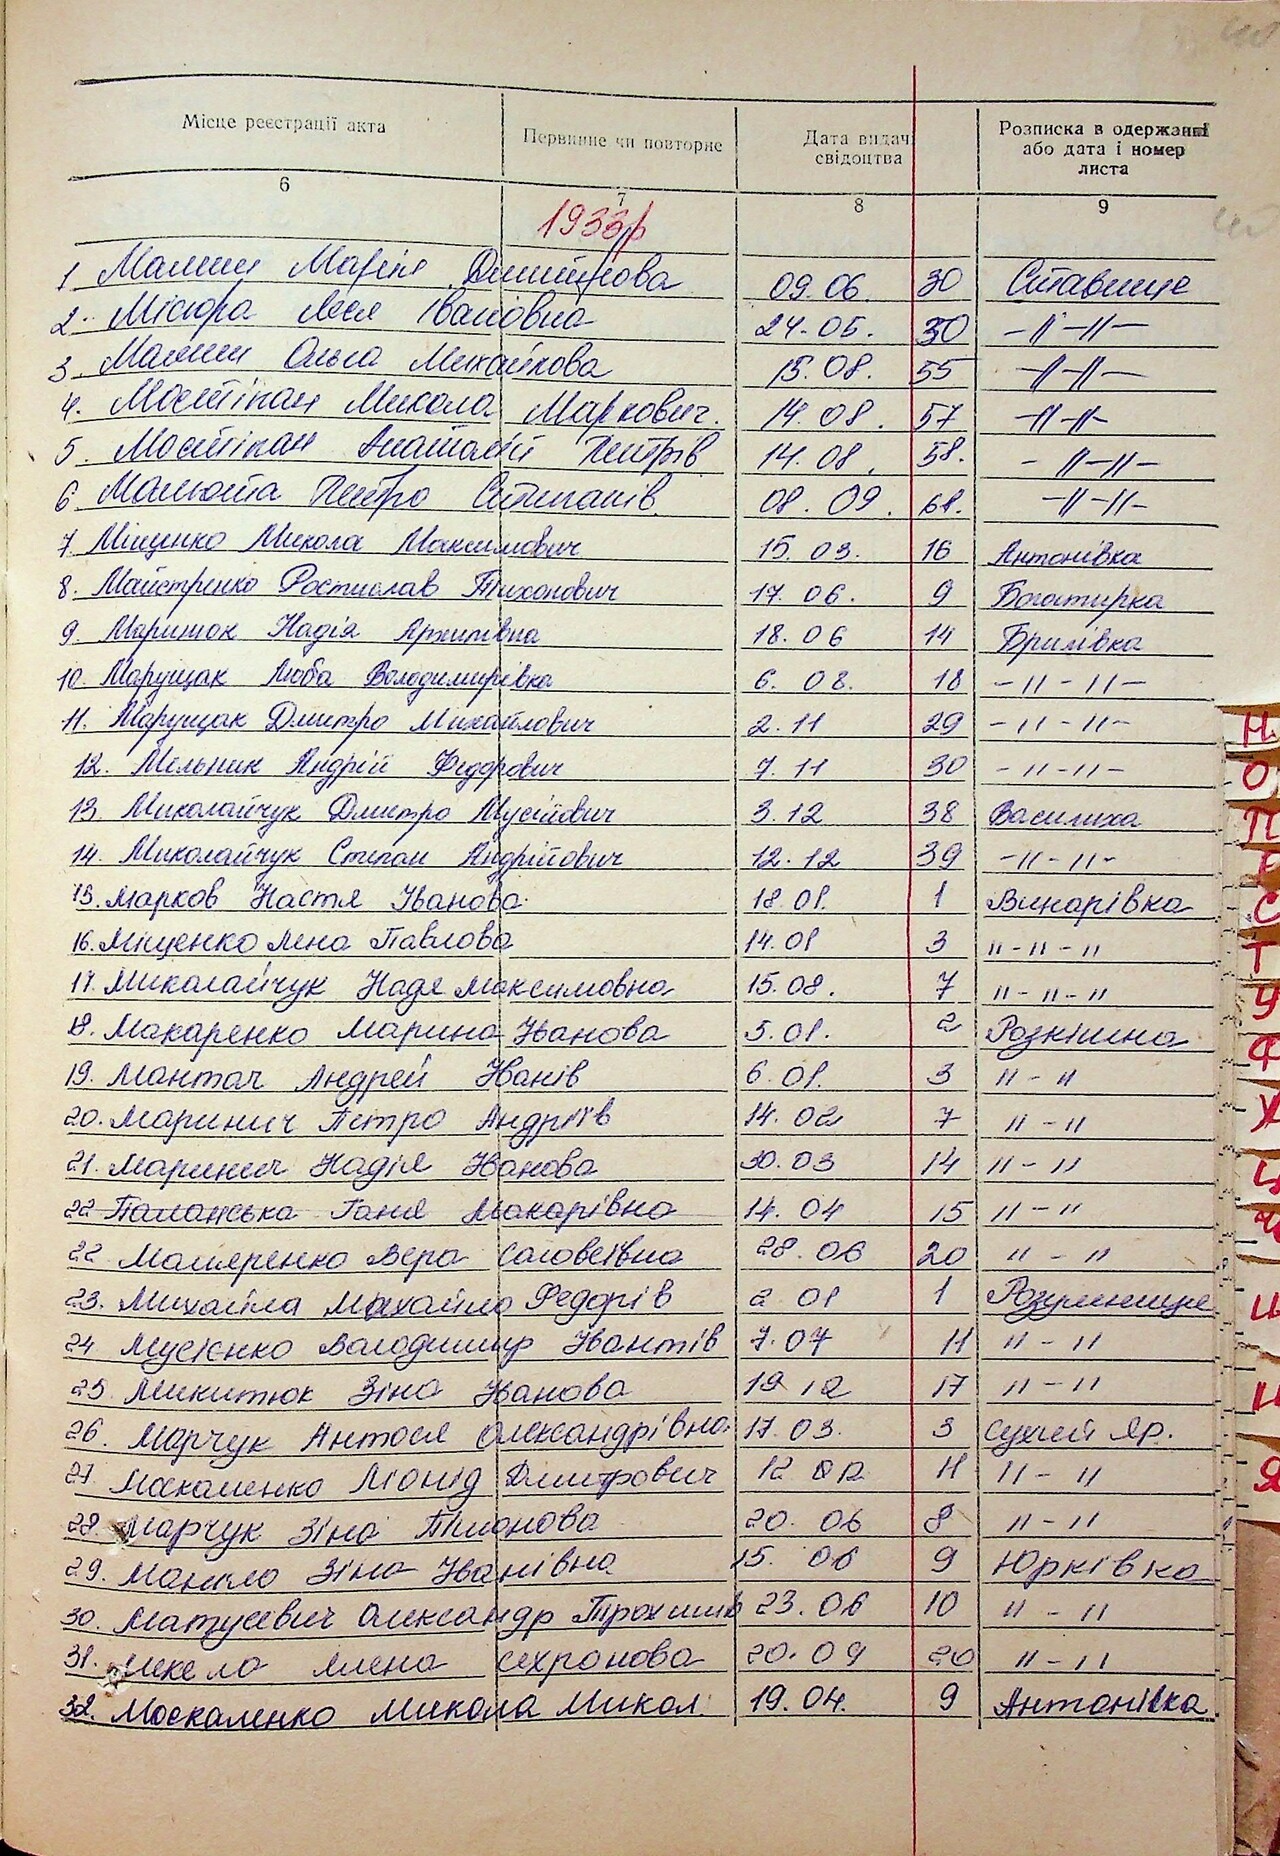 Місце реєстрації акта Первинне чи повторне Дата видачі свідоцтва Розписка в одержанні або дата і номер листа
6 7 8 9
1933р
1 Малиш Марія Дмитрова 09.06. 30 Ставище
2. Місюра Леся Іванівна 24.05. 30 -"-"-
3. Малиш Ольга Михайлова 15.08. 55 -"-"-
4. Мостіпан Микола Маркович. 14.08. 57 -"-"-
5. Мостіпан Анатолій Петрів 14.08. 58. -"-"-
6. Малюта Петро Степанів. 08.09. 61. -"-"-
7. Міщенко Микола Максимович 15.03. 16 Антонівка
8. Майстренко Ростислав Тихонович 17.06. 9 Богатирка
9. Маринюк Надія Архипівна 18.06 14 Бримівка
10. Марущак Люба Володимирівка 6.08. 18 -"-"-
11. Марущак Дмитро Михайлович 2.11 29 -"-"-
12. Мельник Андрій Федорович 7.11 30 -"-"-
13. Миколайчук Дмитро Мусійович 3.12 38 Василиха
14. Миколайчук Степан Андрійович 12.12 39 -"-"-
15. Марков Настя Іванова. 18.01. 1 Винарівка
16. Міщенко Лена Павлова 14.01 3 "-"-"
17. Миколайчук Надя Максимовна 15.08. 7 "-"-"
18. Макаренко Марина Іванова 5.01. 2 Розкішна
19. Мантач Андрей Іванів 6.01. 3 "-"
20. Маринич Петро Андріїв 14.02 7 "-"
21. Маринич Надія Іванова 30.03 14 "-"
22 Паланська Ганя Макарівна 14.04 15 "-"
22 Маляренко Вера 28.06 20 "-"
23. Михайла Михайло Федорів 2 01 1 Розумниця
24 Мусієнко Володимир 7.07 11 "-"
25. Микитюк Зіна Іванова 19 12 17 "-"
26. Марчук Антося Олександрівна. 17.03. 3 Сухий Яр.
27. Москаленко Леонід Дмитрович 12 02 11 "-"
28. Марчук Зіна 20.06 8 "-"
29. Маніло Зіна Іванівна 15.06 9 Юрківка
30. Матусевич Олександр Трохимів 23.06 10 "-"
31. Мекело Олена 20.09 20 "-"
32. Москаленко Микола Микол. 19.04. 9 Антонівка
Н.
О
П
Р
С
Т
У
Ф
Х
Ц
Ч
Ш
Я